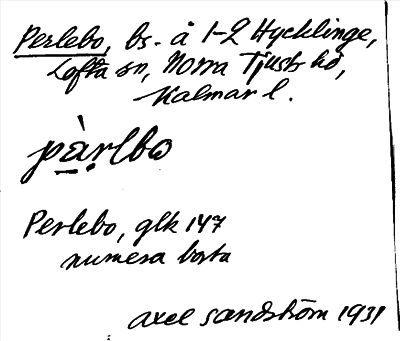 Perlebo, bs. å 1-2 Hycklinge,
Lofta sn, Norra Tjusts hd,
Kalmar l.
pà̱ṛlbo
Perlebo, glk 147
numera borta
Axel Sandström 1931